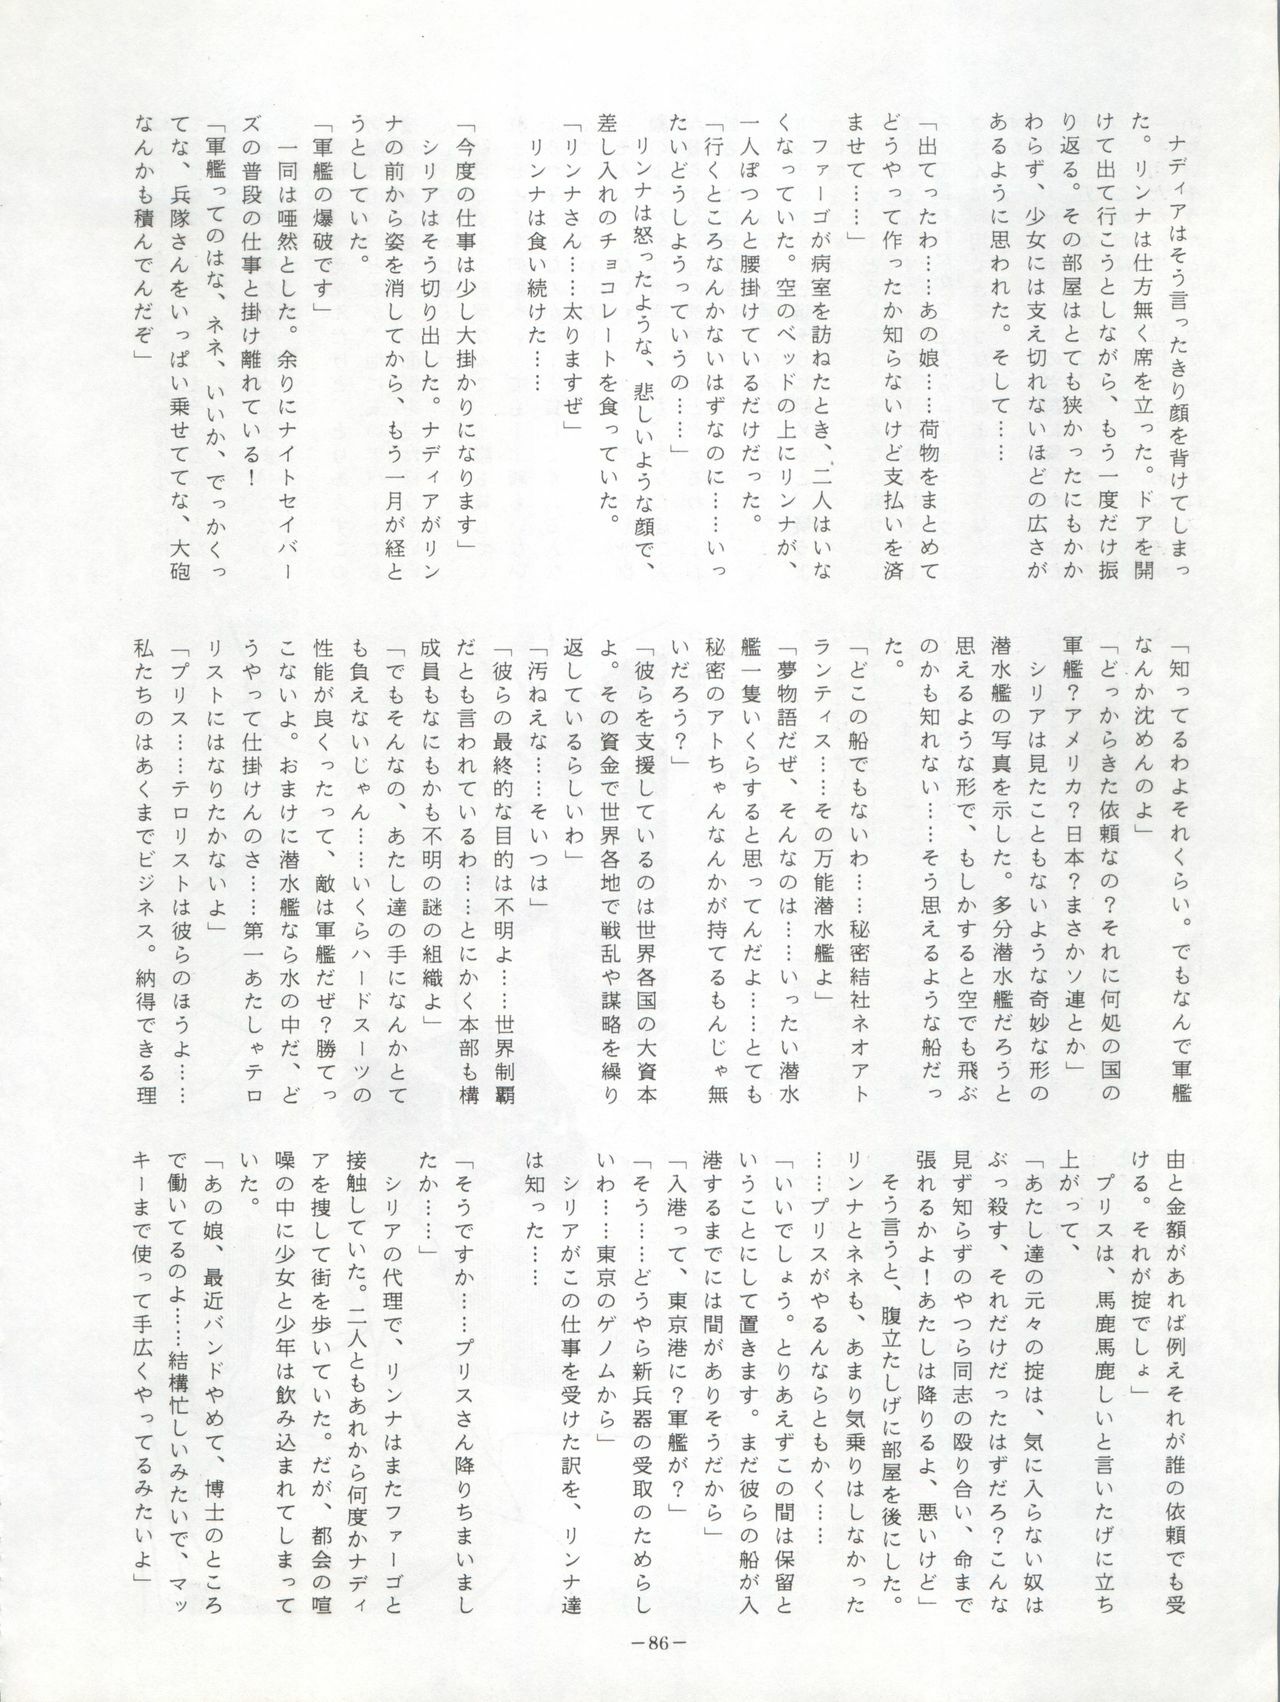 ナディアはそう言ったきり顔を背けてしまっ
た。リンナは仕方無く席を立った。ドアを開
けて出て行こうとしながら、もう一度だけ振
り返る。その部屋はとても狭かったにもかか
わらず、少女には支え切れないほどの広さが
あるように思われた。そして……
「出てったわ……あの娘……荷物をまとめて
どうやって作ったか知らないけど支払いを済
ませて……」
　ファーゴが病室を訪ねたとき、二人はいな
くなっていた。空のベッドの上にリンナが、
一人ぽつんと腰掛けているだけだった。
「行くところなんかないはずなのに……いっ
たいどうしようっていうの……」
　リンナは怒ったような、悲しいような顔で、
差し入れのチョコレートを食っていた。
「リンナさん……太りますぜ」
　リンナは食い続けた……
「今度の仕事は少し大掛かりになります」
　シリアはそう切り出した。ナディアがリン
ナの前から姿を消してから、もう一月が経と
うとしていた。
「軍艦の爆破です」
　一同は唖然とした。余りにナイトセイバー
ズの普段の仕事と掛け離れている！
「軍艦ってのはな、ネネ、いいか、でっかくっ
てな、兵隊さんをいっぱい乗せててな、大砲
なんかも積んでんだぞ」
「知ってるわよそれくらい。でもなんで軍艦
なんか沈めんのよ」
「どっからきた依頼なの？それに何処の国の
軍艦？アメリカ？日本？まさかソ連とか」
　シリアは見たこともないような奇妙な形の
潜水艦の写真を示した。多分潜水艦だろうと
思えるような形で、もしかすると空でも飛ぶ
のかも知れない……そう思えるような船だっ
た。
「どこの船でもないわ……秘密結社ネオアト
ランティス……その万能潜水艦よ」
「夢物語だぜ、そんなのは……いったい潜水
艦一隻いくらすると思ってんだよ……とても
秘密のアトちゃんなんかが持てるもんじゃ無
いだろう？」
「彼らを支援しているのは世界各国の大資本
よ。その資金で世界各地で戦乱や謀略を繰り
返しているらしいわ」
「汚ねえな……そいつは」
「彼らの最終的な目的は不明よ……世界制覇
だとも言われているわ……とにかく本部も構
成員もなにもかも不明の謎の組織よ」
「でもそんなの、あたし達の手になんかとて
も負えないじゃん……いくらハードスーツの
性能が良くったって、敵は軍艦だぜ？勝てっ
こないよ。おまけに潜水艦なら水の中だ、ど
うやって仕掛けんのさ……第一あたしゃテロ
リストにはなりたかないよ」
「プリス……テロリストは彼らのほうよ……
私たちのはあくまでビジネス。納得できる理
由と金額があれば例えそれが誰の依頼でも受
ける。それが掟でしょ」
　プリスは、馬鹿馬鹿しいと言いたげに立ち
上がって、
「あたし達の元々の掟は、気に入らない奴は
ぶっ殺す、それだけだったはずだろ？こんな
見ず知らずのやつら同志の殴り合い、命まで
張れるかよ！あたしは降りるよ、悪いけど」
　そう言うと、腹立たしげに部屋を後にした。
リンナとネネも、あまり気乗りはしなかった
……プリスがやるんならともかく……
「いいでしょう。とりあえずこの間は保留と
いうことにして置きます。まだ彼らの船が入
港するまでには間がありそうだから」
「入港って、東京港に？軍艦が？」
「そう……どうやら新兵器の受取のためらし
いわ……東京のゲノムから」
　シリアがこの仕事を受けた訳を、リンナ達
は知った……
「そうですか……プリスさん降りちまいまし
たか……」
　シリアの代理で、リンナはまたファーゴと
接触していた。二人ともあれから何度かナディ
アを捜して街を歩いていた。だが、都会の喧
噪の中に少女と少年は飲み込まれてしまって
いた。
「あの娘、最近バンドやめて、博士のところ
で働いてるのよ……結構忙しいみたいで、マッ
キーまで使って手広くやってるみたいよ」
－86－